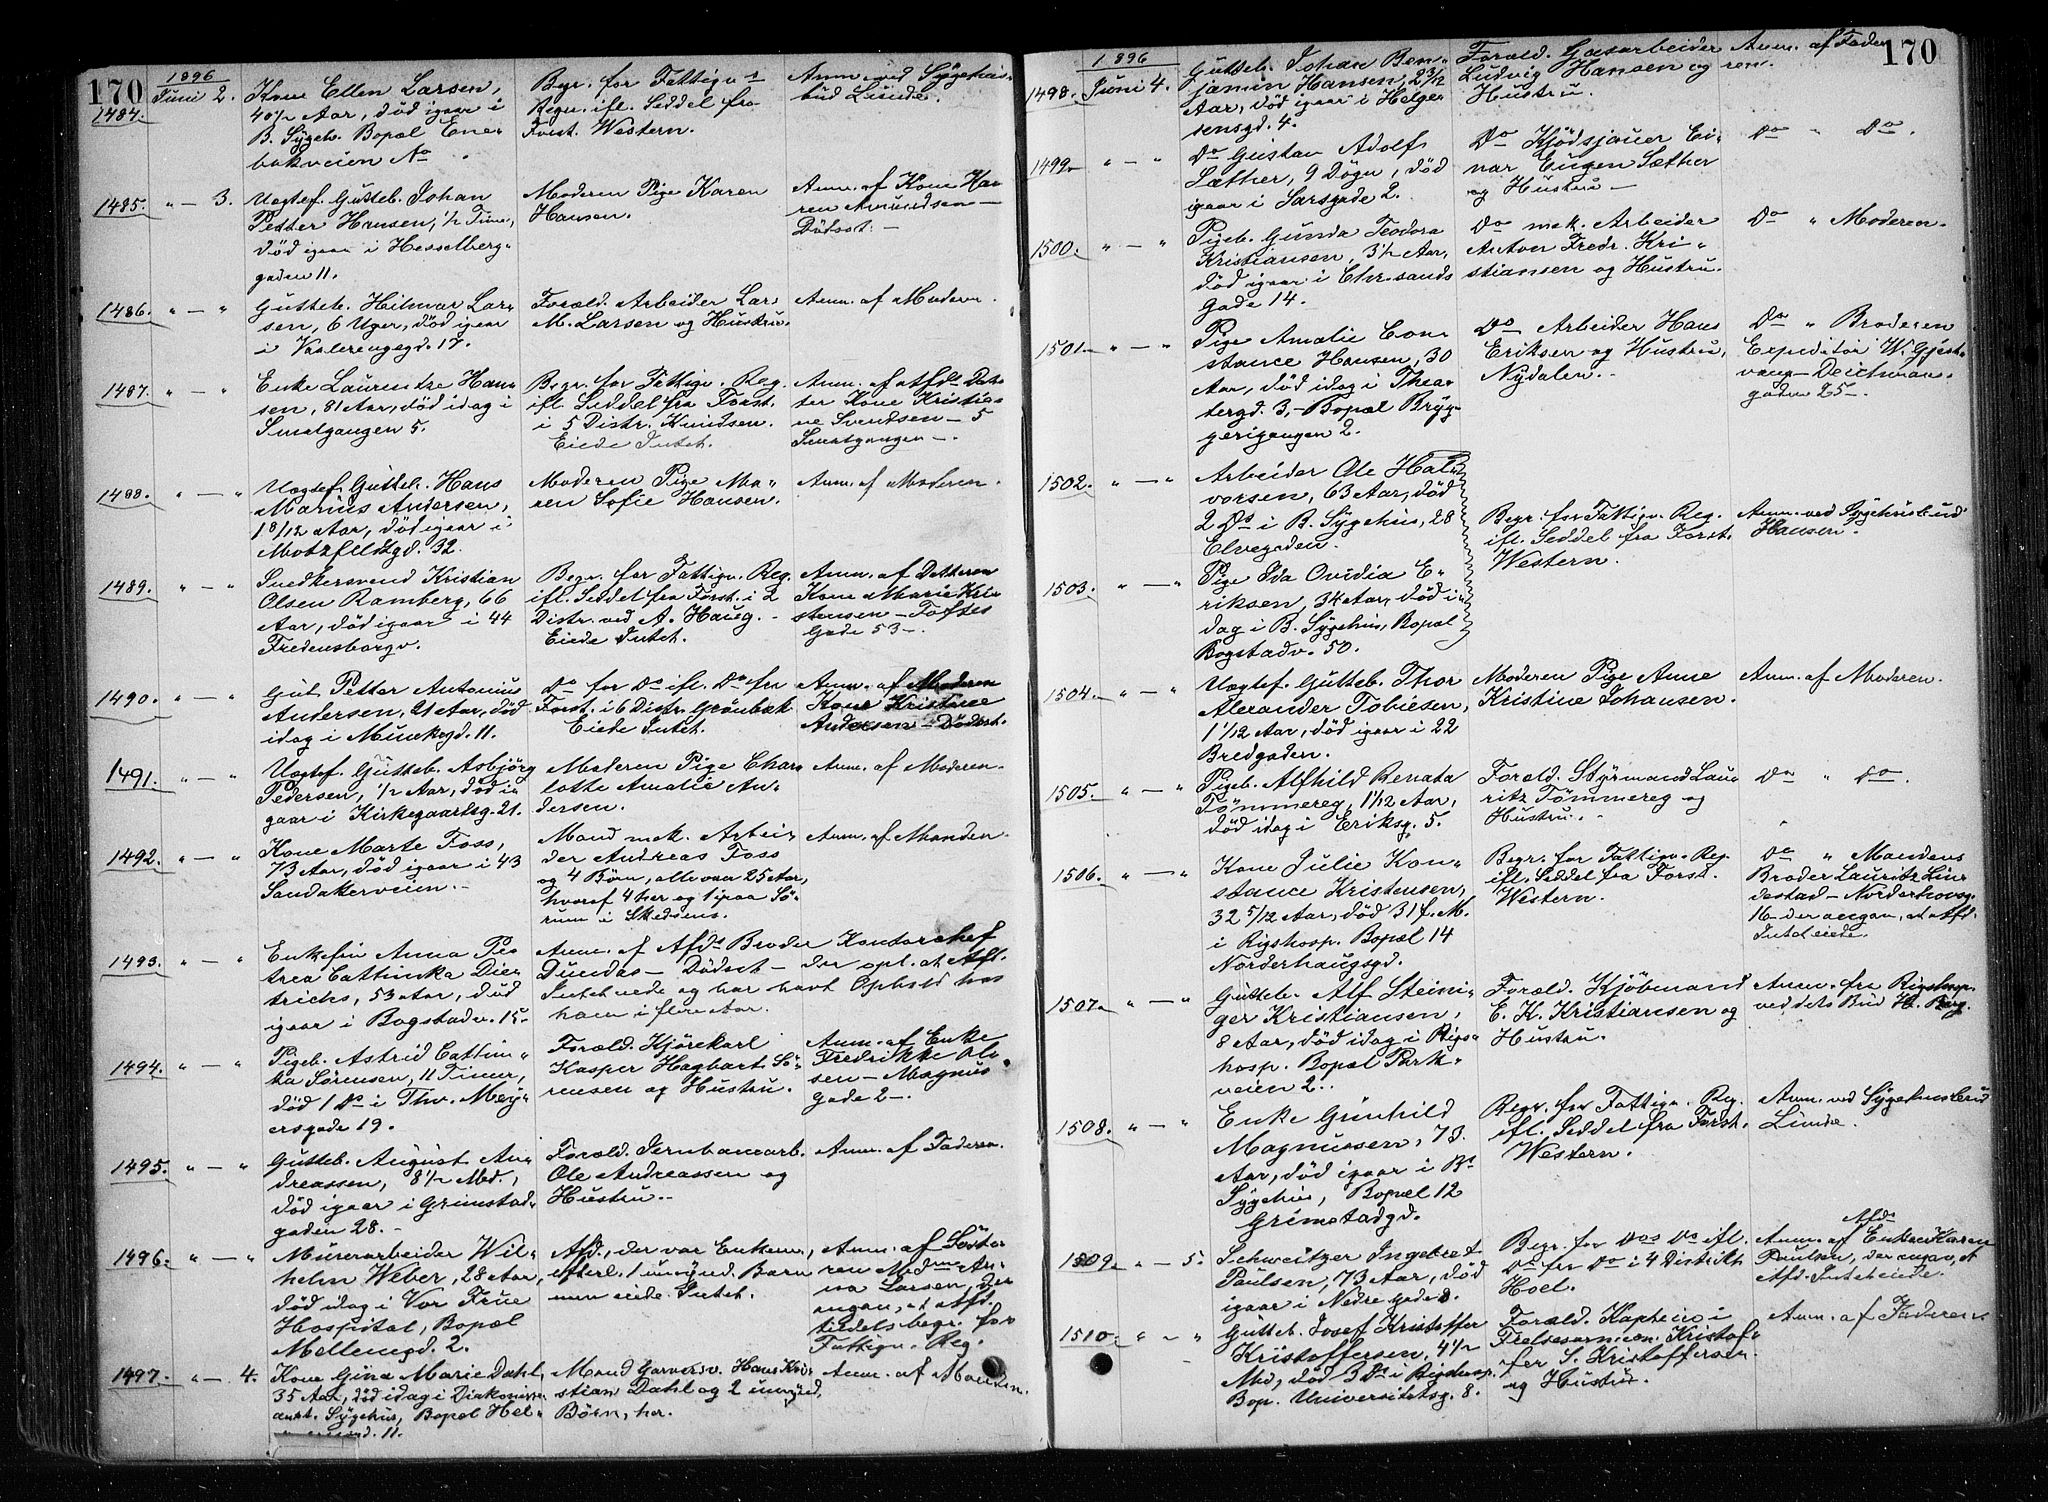 170
1896
1484.
Juni 2.
Kone Ellen Larsen,
40 1/2 Aar, død igaar i
B. Sygeh. Bopæl Ene-
bakveien No
Begr. for Fattigv's
Regn. ifl. Seddel fra
Forst. Western.
Anm. ved Sygehus-
bud Lunde.
1485.
" — 3.
Uægtef. Gutteb. Johan
Petter Hansen, 1/2 Time,
død igaar i Hesselberg-
gaden 11.
Moderen Pige Karen
Hansen.
Anm. af Kone Ka-
ren Amundsen —
Dødsst. —
1486.
" — "
Gutteb. Hilmar Lar-
sen, 6 Uger, død igaar
i Vaalerenggd. 17.
Foræld. Arbeider Lar-
M. Larsen og Hustru.
Anm. af Moderen.
1487.
" — "
Enke Laurentze Han-
sen, 81 Aar, død idag i
Smalgangen 5.
Begr. for Fattigv. Reg.
ifl. Seddel fra Forst.
i 5 Distr. Knudsen.
Eiede Intet.
Anm. af Afd's Dat-
ter Kone Kristia-
ne Svendsen — 5
Smalgangen —.
1488.
" — "
Uægtef. Gutteb. Hans
Marius Andersen,
1 8/12 Aar, død igaar i
Motzfeldtgd. 32.
Moderen Pige Ma-
ren Sofie Hansen.
Anm. af Moderen.
1489.
" — "
Snedkersvend Kristian
Olsen Ramberg, 66
Aar, død igaar i 44
Fredensborgv.
Begr. for Fattigv. Reg.
ifl. Seddel fra Forst. i 2
Distr. ved A. Haug. -
Eiede Intet.
Anm. af Datteren
Kone Marie Kri-
stensen — Toftes
Gade 53 —.
1490.
" — "
Gut Petter Antonius
Andersen, 21 Aar, død
idag i Munkegd. 11.
Do for Do ifl. Do fra
Forst. i 6 Distr. Grønbæk
Eiede Intet.
Anm. af Moderen
Kone Kristine
Andersen — Dødsst.
1491.
" — "
Uægtef. Gutteb. Asbjørg
Pedersen, 1/2 Aar, død i-
gaar i Kirkegaardsg. 21.
Moderen Pige Char-
lotte Amalie An-
dersen.
Anm. af Moderen.
1492.
" — "
Kone Marte Foss,
73 Aar, død igaar i 43
Sandakerveien. —
Mand mek. Arbei-
der Andreas Foss
og 4 Børn, alle over 25 Aar,
hvoraf 4 her og 1 paa Sø-
rum i Skedsmo.
Anm. af Manden.
1493.
" — "
Enkefru Anna Pe-
trea Cattinka Die-
trichs, 53 Aar, død
igaar i Bogstadv. 15.
Anm. af Afd's Broder Kontorchef
Dundas — Dødsst — der opl. at Afd.
Intet eiede og har havt Ophold hos
ham i flere Aar.
1494.
" — "
Pigeb. Astrid Cattin-
ka Sørensen, 11 Timer,
død 1 Ds i Thv. Mey-
ersgade 19.
Foræld. Kjørekarl
Kasper Hagbart Sø-
rensen og Hustru.
Anm. af Enke
Fredrikke Ol-
sen — Magnus
Gade 2 —.
1495.
" — "
Gutteb. August An-
dreassen, 8 1/2 Md.,
død igaar i Grimstad-
gaden 28. —
Foræld. Jernbanearb.
Ole Andreassen og
Hustru. —
Anm. af Faderen.
1496.
" — "
Murerarbeider Wil-
helm Weber, 28 Aar,
død idag i Vor Frue
Hospital, Bopæl
Møllengd. 2.
Afd., der var Enkem.,
efterl. 1 umynd. Barn
men eiede Intet.
Anm. af Søste-
ren Mdm An-
na Larsen, der
angav, at Afd.
tildels begr. for
Fattigv. Reg.
1497.
" — 4.
Kone Gina Marie Dahl,
35 Aar, død idag i Diakonisse
anst. Sygehus, Bopæl Hel-
gd. 11.
Mand Garversv. Hans Kri-
stian Dahl og 2 umynd.
Børn, her.
Anm. af Manden.
170
1896
1498.
Juni 4.
Gutteb. Johan Ben-
jamin Hansen, 2 3/12
Aar, død igaar i Helge-
sensgd. 4.
Foræld. Gasarbeider
Ludvig Hansen og
Hustru.
Anm. af Fade-
ren.
1499.
" — "
Do Gustav Adolf
Sæther, 9 Døgn, død
igaar i Sarsgade 2.
Do Kjødsjouer Ei-
nar Eugen Sæther
og Hustru —
Do " Do.
1500.
" — "
Pigeb. Gunda Teodora
Kristiansen, 3 1/2 Aar,
død igaar i Chr.sands
Gade 14.
Do mek. Arbeider
Anton Fredr. Kri-
stiansen og Hustru.
Do " Moderen.
1501.
" — "
Pige Amalie Con-
stance Hansen, 30
Aar, død idag i Thea-
tergd. 3, — Bopæl Bryg-
gerigangen 2.
Do Arbeider Hans
Eriksen og Hustru,
Nydalen. —
Do " Broderen
Expeditør W. Gjest-
vang — Deichman-
gaden 25 —.
1502.
" — "
Arbeider Ole Hal-
vorsen, 63 Aar, død
2 Ds i B. Sygehus, 28
Elvegaden.
Begr. for Fattigv. Reg.
ifl. Seddel fra Forst.
Western.
Anm. ved Sygehusbud
Hansen.
1503.
" — "
Pige Ida Ovidia E-
riksen, 34 Aar, død i-
dag i B. Sygehus, Bopæl
Bogstadv. 50.
1504.
" — "
Uægtef. Gutteb. Thor
Alexander Tobiesen,
1 1/12 Aar, død igaar i 22
Bredgaden.
Moderen Pige Anne
Kristine Johansen.
Anm. af Moderen.
1505.
" — "
Pigeb. Alfhild Renata
Tømmereg, 1 1/12 Aar,
død idag i Eriksg. 5.
Foræld. Styrmand Lau-
ritz Tømmereg og
Hustru. -
Do " Do.
1506.
" — "
Kone Julie Kon-
stance Kristensen,
32 5/12 Aar, død 31 f. M.
i Rigshosp. Bopæl 14
Norderhaugsgd.
Begr. for Fattigv. Reg.
ifl. Seddel fra Forst.
Western.
Do " Mandens
Broder Lauritz Lin-
destad — Norderhovsg.
16 — der angav, at Afd.
Intet eiede.
1507.
" — "
Gutteb. Alf Steini-
ger Kristiansen,
8 Aar, død idag i Rigs-
hosp. Bopæl Park-
veien 2.
Foræld. Kjøbmand
E. K. Kristiansen og
Hustru.
Anm. fra Rigshosp.
ved dets Bud H. Berg.
1508.
" — "
Enke Gunhild
Magnussen, 73
Aar, død igaar i Bs
Sygehus, Bopæl 12
Grimstadgd.
Begr. for Fattigv. Reg.
ifl. Seddel fra Forst.
Western.
Anm. ved Sygehusbud
Lunde.
1509.
" — 5.
Schweitzer Ingebret
Paulsen, 73 Aar, død
igaar i Nedre Gade 8.
Begr. for Dos Do ifl.
Do fra Do i 4 Distrikt
Hoel.
Anm. af Afds Enke Karen
Paulsen, der angav, at
Afd. Intet eiede.
1510.
" — "
Gutteb. Josef Kristoffer
Kristoffersen, 4 1/2
Md, død 3 Ds i Rigshosp.
Bop. Universitetsg. 8.
Foræld. Kaptein i
Frelsesarmeen Kristof-
fer S. Kristoffersen
og Hustru.
Anm. af Faderen.